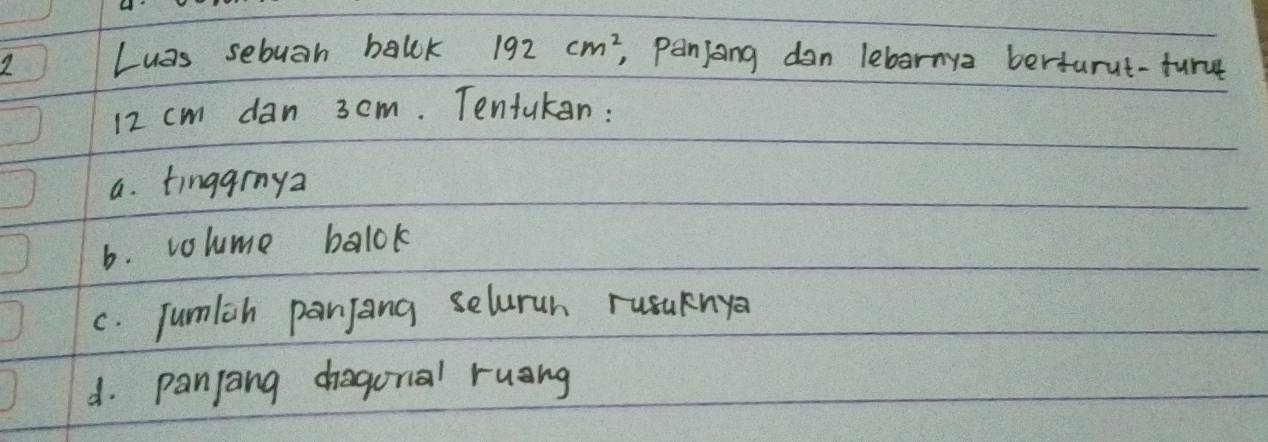 2 Luas sebuah balok 192 cm², panjang dan lebarnya berturut-turut
12 cm dan 3 cm. Tentukan:
a. tingginya
b. volume balok
c. Jumlah panjang seluruh rusuknya
d. panjang diagonal ruang